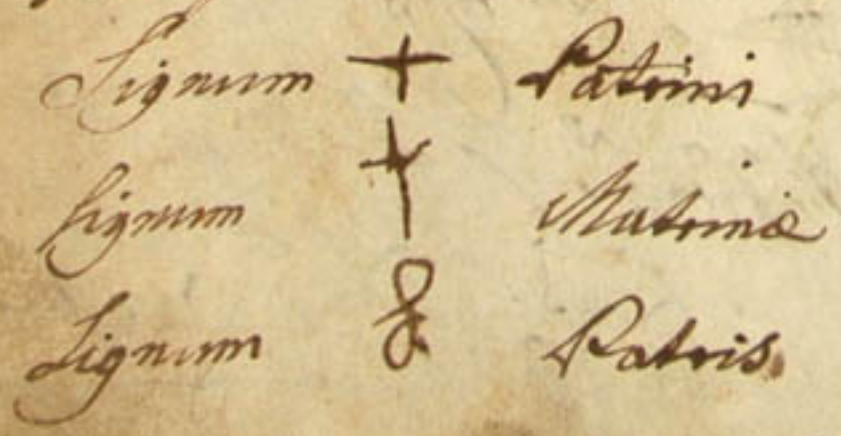 Signum + Patrini
Signum + Matrinæ
Signum Patris